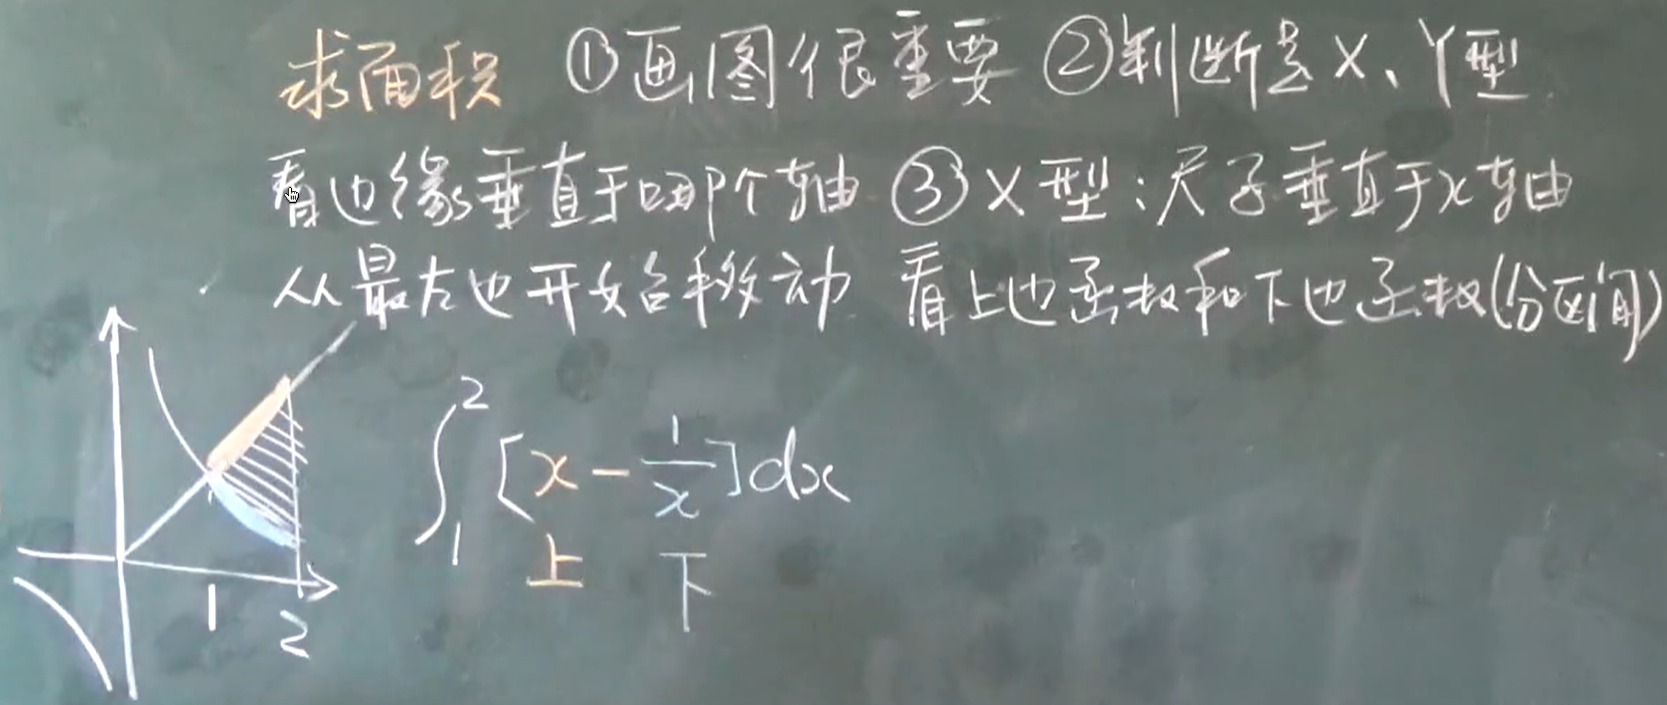 求面积 ①画图很重要 ②判断是X、Y型
看边缘垂直于哪个轴 ③X型：尺子垂直于x轴
从最左边开始移动 看上边函数和下边函数(分区间)
∫₁² [x - 1/x] dx
上 下
1
2